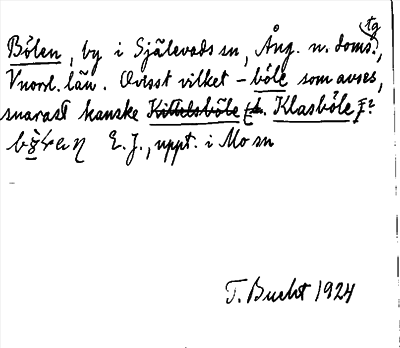 tg
Bölen, by i Själevads sn, Ång. n. doms.,
Vnorrl. län. Ovisst vilket -böle som avses,
snarast kanske Kittelsböle Klasböle?
E. J., uppt. i Mo sn
T. Bucht 1924